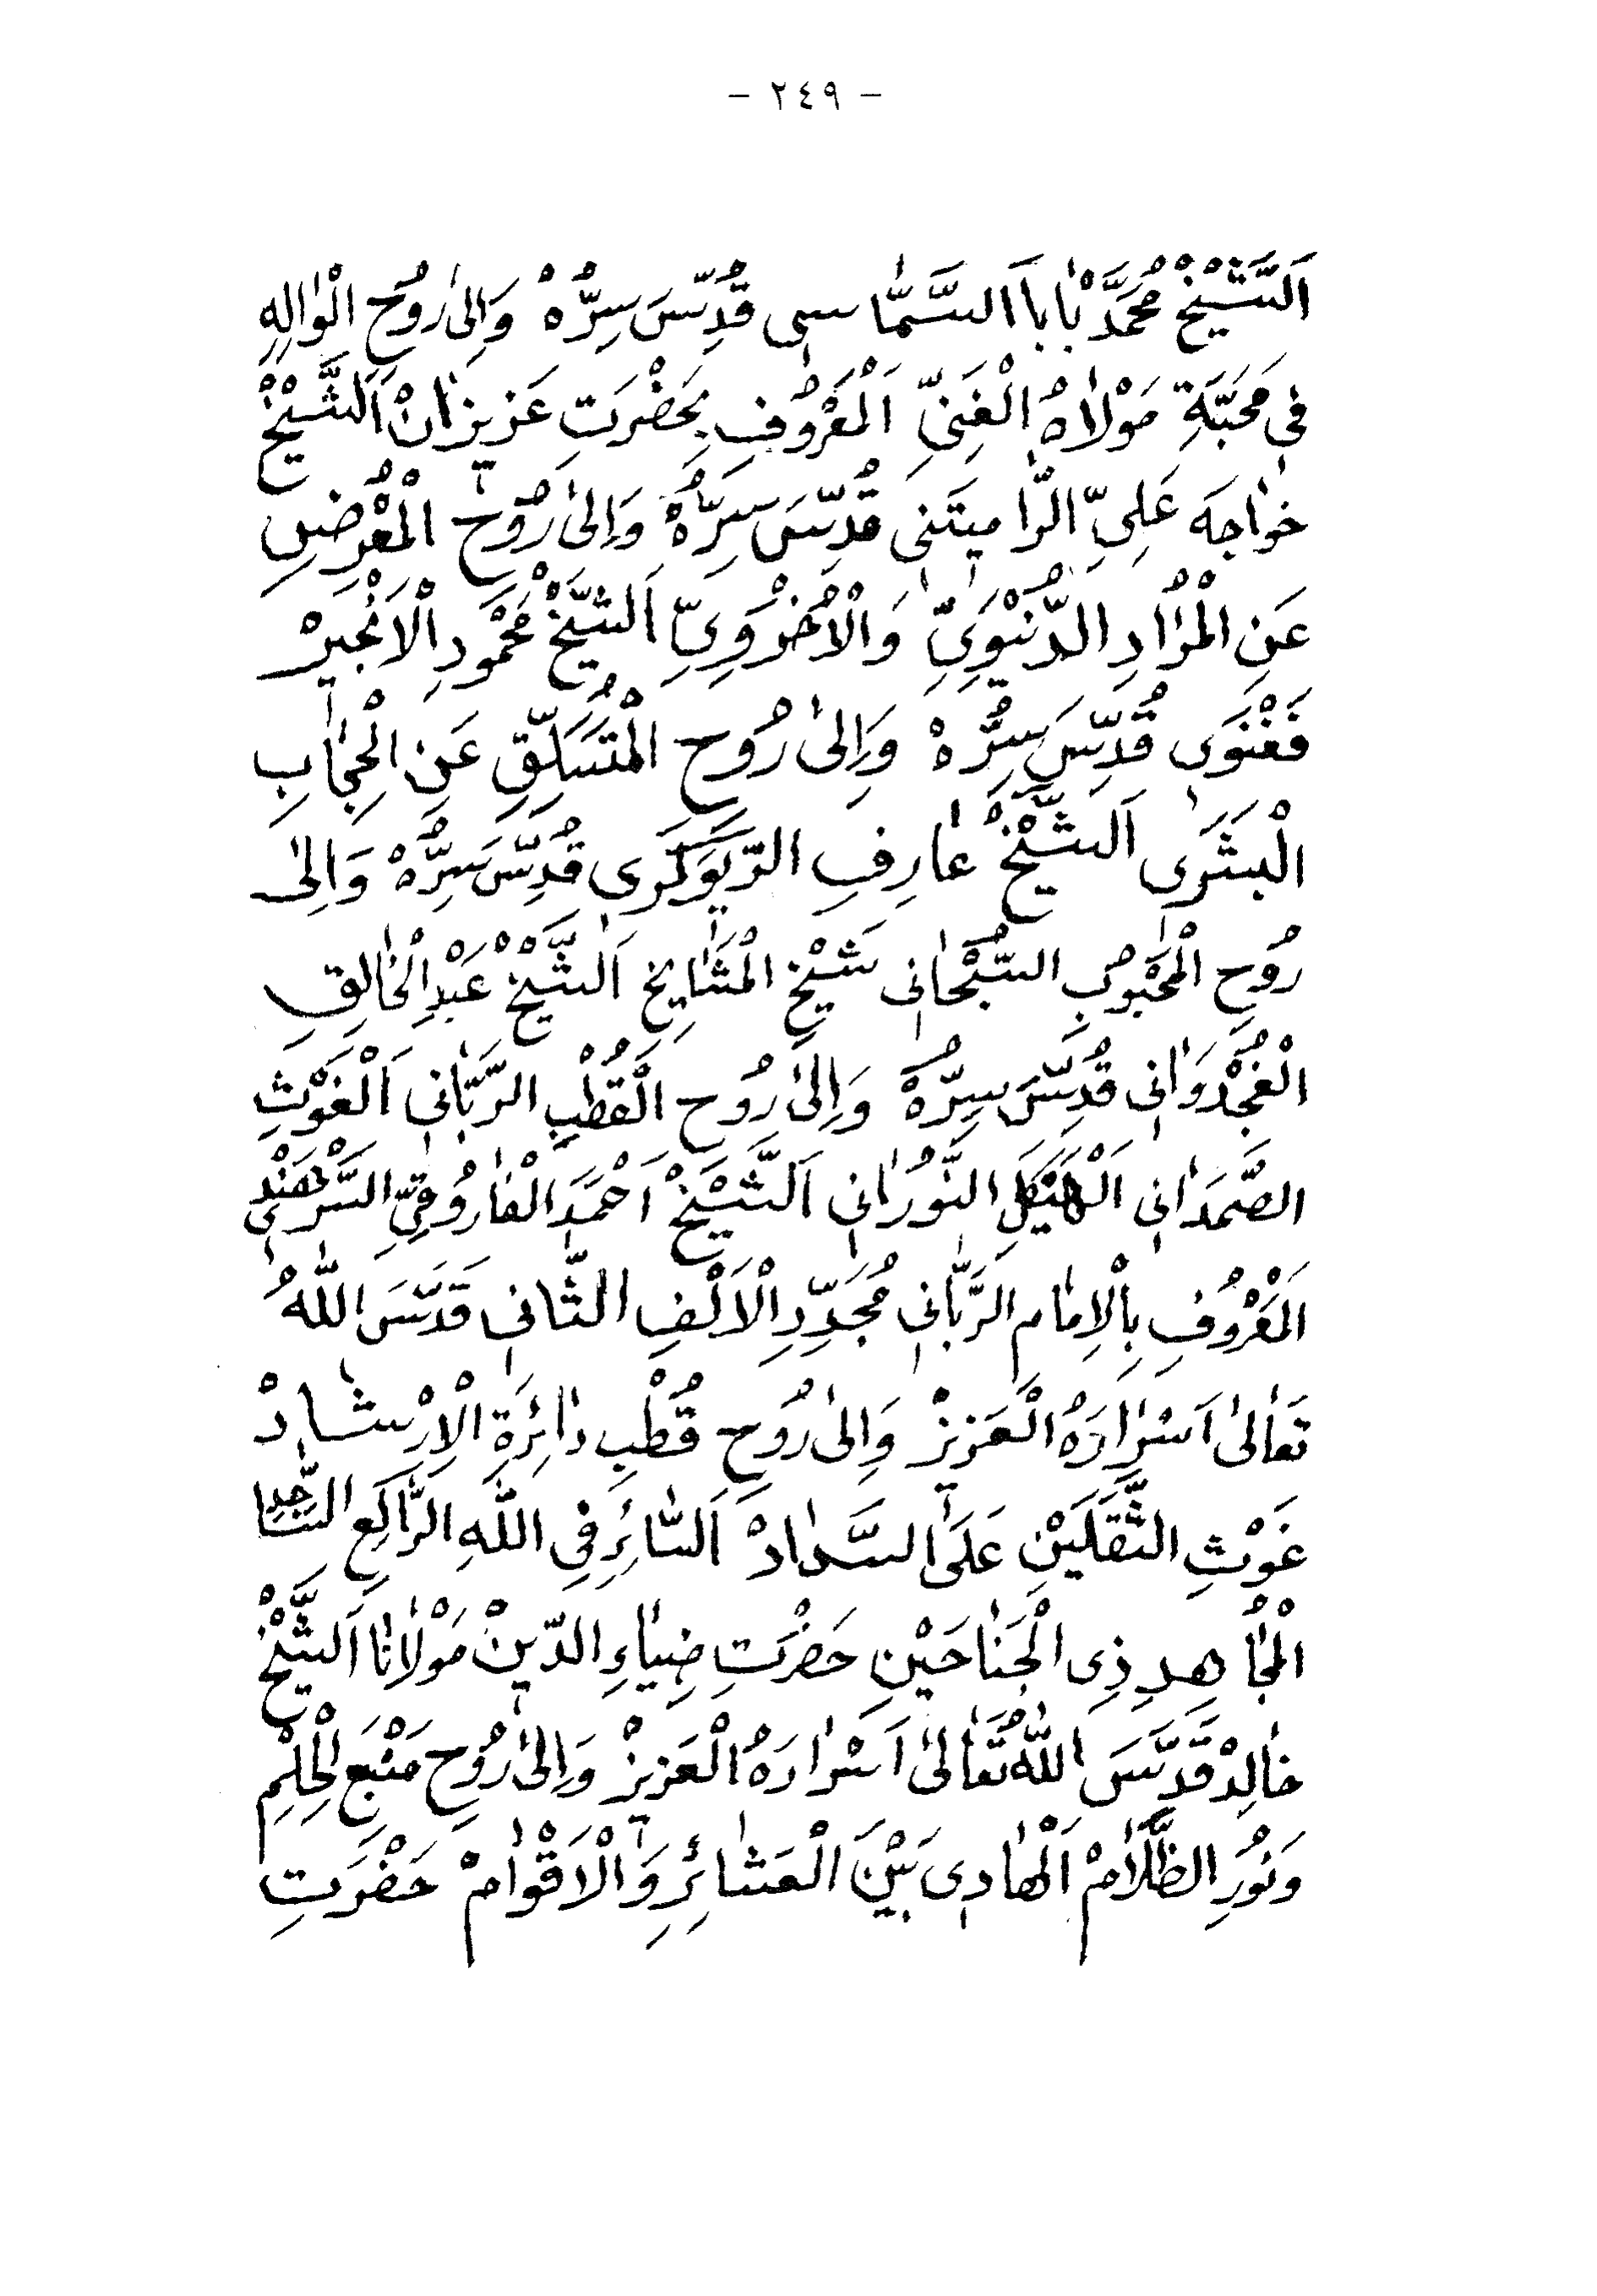 - ٢٤٩ -
اَلشَّيْخْ مُحَمَّدْ بَابَا اَلسَّمَّاسِى قُدِّسَ سِرُّهْ وَاِلَى رُوحِ الْوَالِهِ
فِى مَحَبَّةِ مَوْلَاهُ الْغَنِىِّ اَلْمَعْرُوفِ بِحَضْرَتِ عَزِيزَانْ اَلشَّيْخْ
خَواجَه عَلِىِّ الرَّامِيتَنِى قُدِّسَ سِرُّهْ وَاِلَى رُوحِ الْمُعْرِضِ
عَنِ الْمُرَادِ الدُّنْيَوِىِّ وَالْاُخْرَوِىِّ اَلشَّيْخْ مَحْمُودِ الْاَنْجِيرْ
فَغْنَوِى قُدِّسَ سِرُّهْ وَاِلَى رُوحِ الْمُتَسَلِّقِ عَنِ الْحِجَابِ
الْبَشَرِى اَلشَّيْخْ عَارِفِ الرِّيوَكَرِى قُدِّسَ سِرُّهْ وَاِلَى
رُوحِ الْمَحْبُوبِ السُّبْحَانِى شَيْخِ الْمَشَايِخِ اَلشَّيْخْ عَبْدِ الْخَالِقِ
الْغُجْدُوَانِى قُدِّسَ سِرُّهْ وَاِلَى رُوحِ الْقُطْبِ الرَّبَّانِى اَلْغَوْثِ
الصَّمَدَانِى اَلْهَيْكَلِ النُّورَانِى اَلشَّيْخْ اَحْمَدَ الْفَارُوقِىِّ السَّرْهَنْدِى
اَلْمَعْرُوفِ بِالْاِمَامِ الرَّبَّانِى مُجَدِّدِ الْاَلْفِ الثَّانِى قَدَّسَ اللّٰهُ
تَعَالَى اَسْرَارَهُ الْعَزِيزْ وَاِلَى رُوحِ قُطْبِ دَائِرَةِ الْاِرْشَادْ
غَوْثِ الثَّقَلَيْنِ عَلَى السَّدَادْ اَلسَّائِرِ فِى اللّٰهِ الرَّاكِعِ السَّاجِدِ
الْمُجَاهِدِ ذِى الْجَنَاحَيْنِ حَضْرَتِ ضِيَاءِ الدِّينْ مَوْلَانَا اَلشَّيْخْ
خَالِدْ قَدَّسَ اللّٰهُ تَعَالَى اَسْرَارَهُ الْعَزِيزْ وَاِلَى رُوحِ مَنْبَعِ الْحِلْمِ
وَنُورِ الظَّلَامْ اَلْهَادِى بَيْنَ الْعَشَائِرِ وَالْاَقْوَامْ حَضْرَتِ